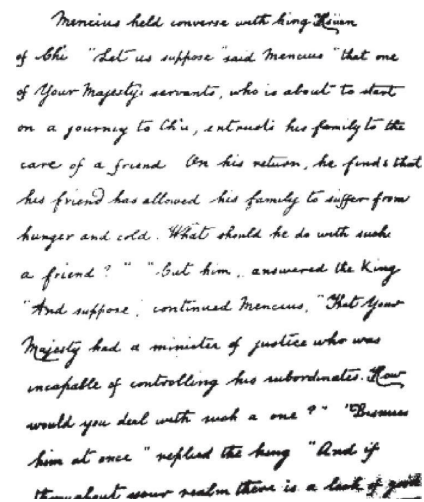 Mencius held converse with king Hsüan
of Chi "Let us suppose" said Mencius "that one
of Your Majesty's servants, who is about to start
on a journey to Ch'u, entrusts his family to the
care of a friend On his return, he finds that
his friend has allowed his family to suffer from
hunger and cold. What should he do with such
a friend?" "Cut him", answered the King
"And suppose", continued Mencius, "That Your
Majesty had a minister of justice who was
incapable of controlling his subordinates. How
would you deal with such a one?" "Dismiss
him at once" replied the king "And if
throughout your realm there is a lack of